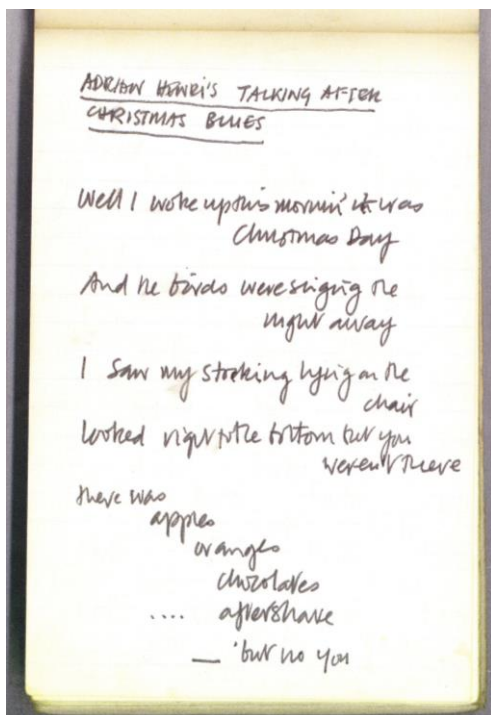 ADRIAN HENRI'S TALKING AFTER
CHRISTMAS BLUES
Well I woke up this mornin' it was
Christmas Day
And the birds were singing the
night away
I saw my stocking lying on the
chair
looked right to the bottom but you
weren't there
there was
apples
oranges
chocolates
.... aftershave
— but no you